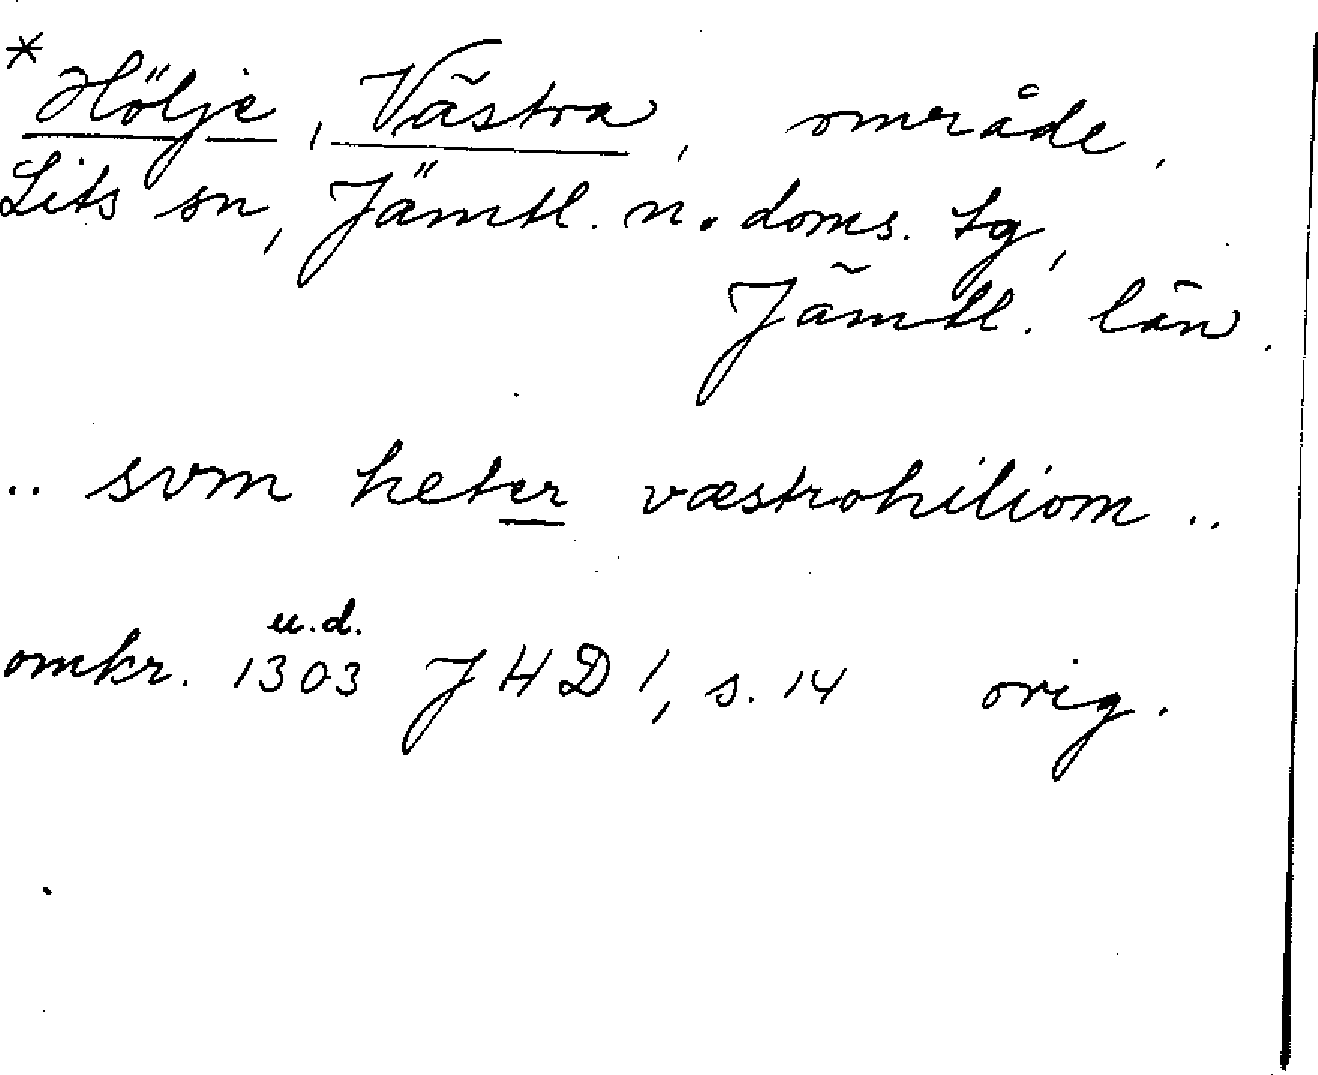 * Hölje, Västra, område.
Lits sn, Jämtl. n. doms. tg,
Jämtl. län.
.. svm heter væstrohiliom ..
u.d.
omkr. 1303 JHD 1, s. 14 orig.